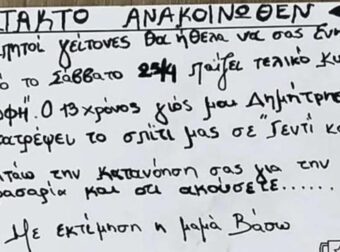 ΚΤΑΚΤΟ ΑΝΑΚΟΙΝΩΘΕΝ
γείτονες θα ήθελα να σας
το Σάββατο 25/4 παίζει τελικό
Ο 13 χρόνος γιός μου Δημήτρης
το σπίτι μας σε "Γεντί
την κατανόηση σας για την
φασαρία και ότι ακούσετε......
Με εκτίμηση η μαμά Βάσω